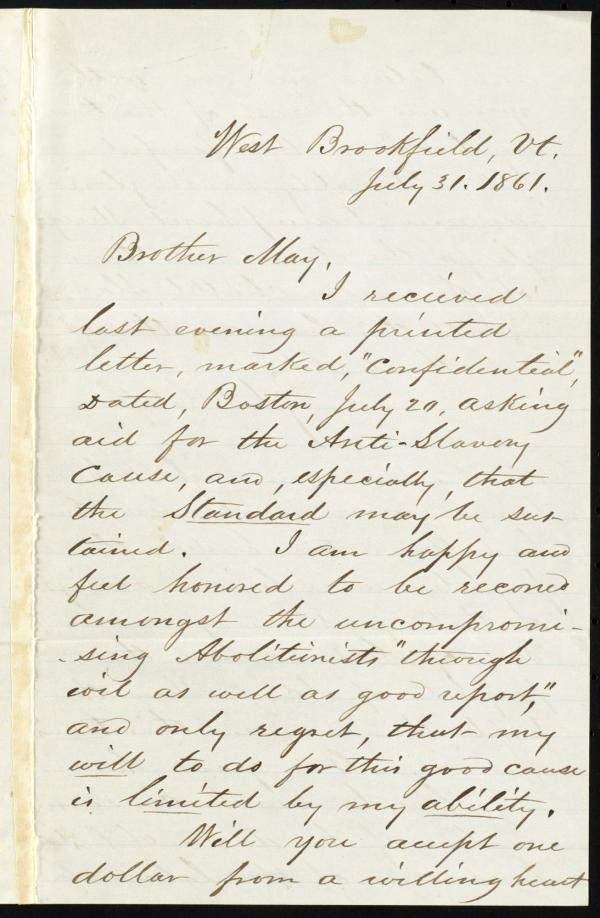 West Brookfield, Vt.
July 31. 1861.
Brother May,
I recieved
last evening a printed
letter, marked, "Confidential",
Dated, Boston, July 20, asking
aid for the Anti-Slavery
Cause, and, especially, that
the Standard may be sus-
tained. I am happy and
feel honored to be reconed
amongst the uncompromi-
-sing Abolitionists "through
evil as well as good report,"
and only regret, that my
will to do for this good cause
is limited by my ability.
Will you accept one
dollar from a willing heart